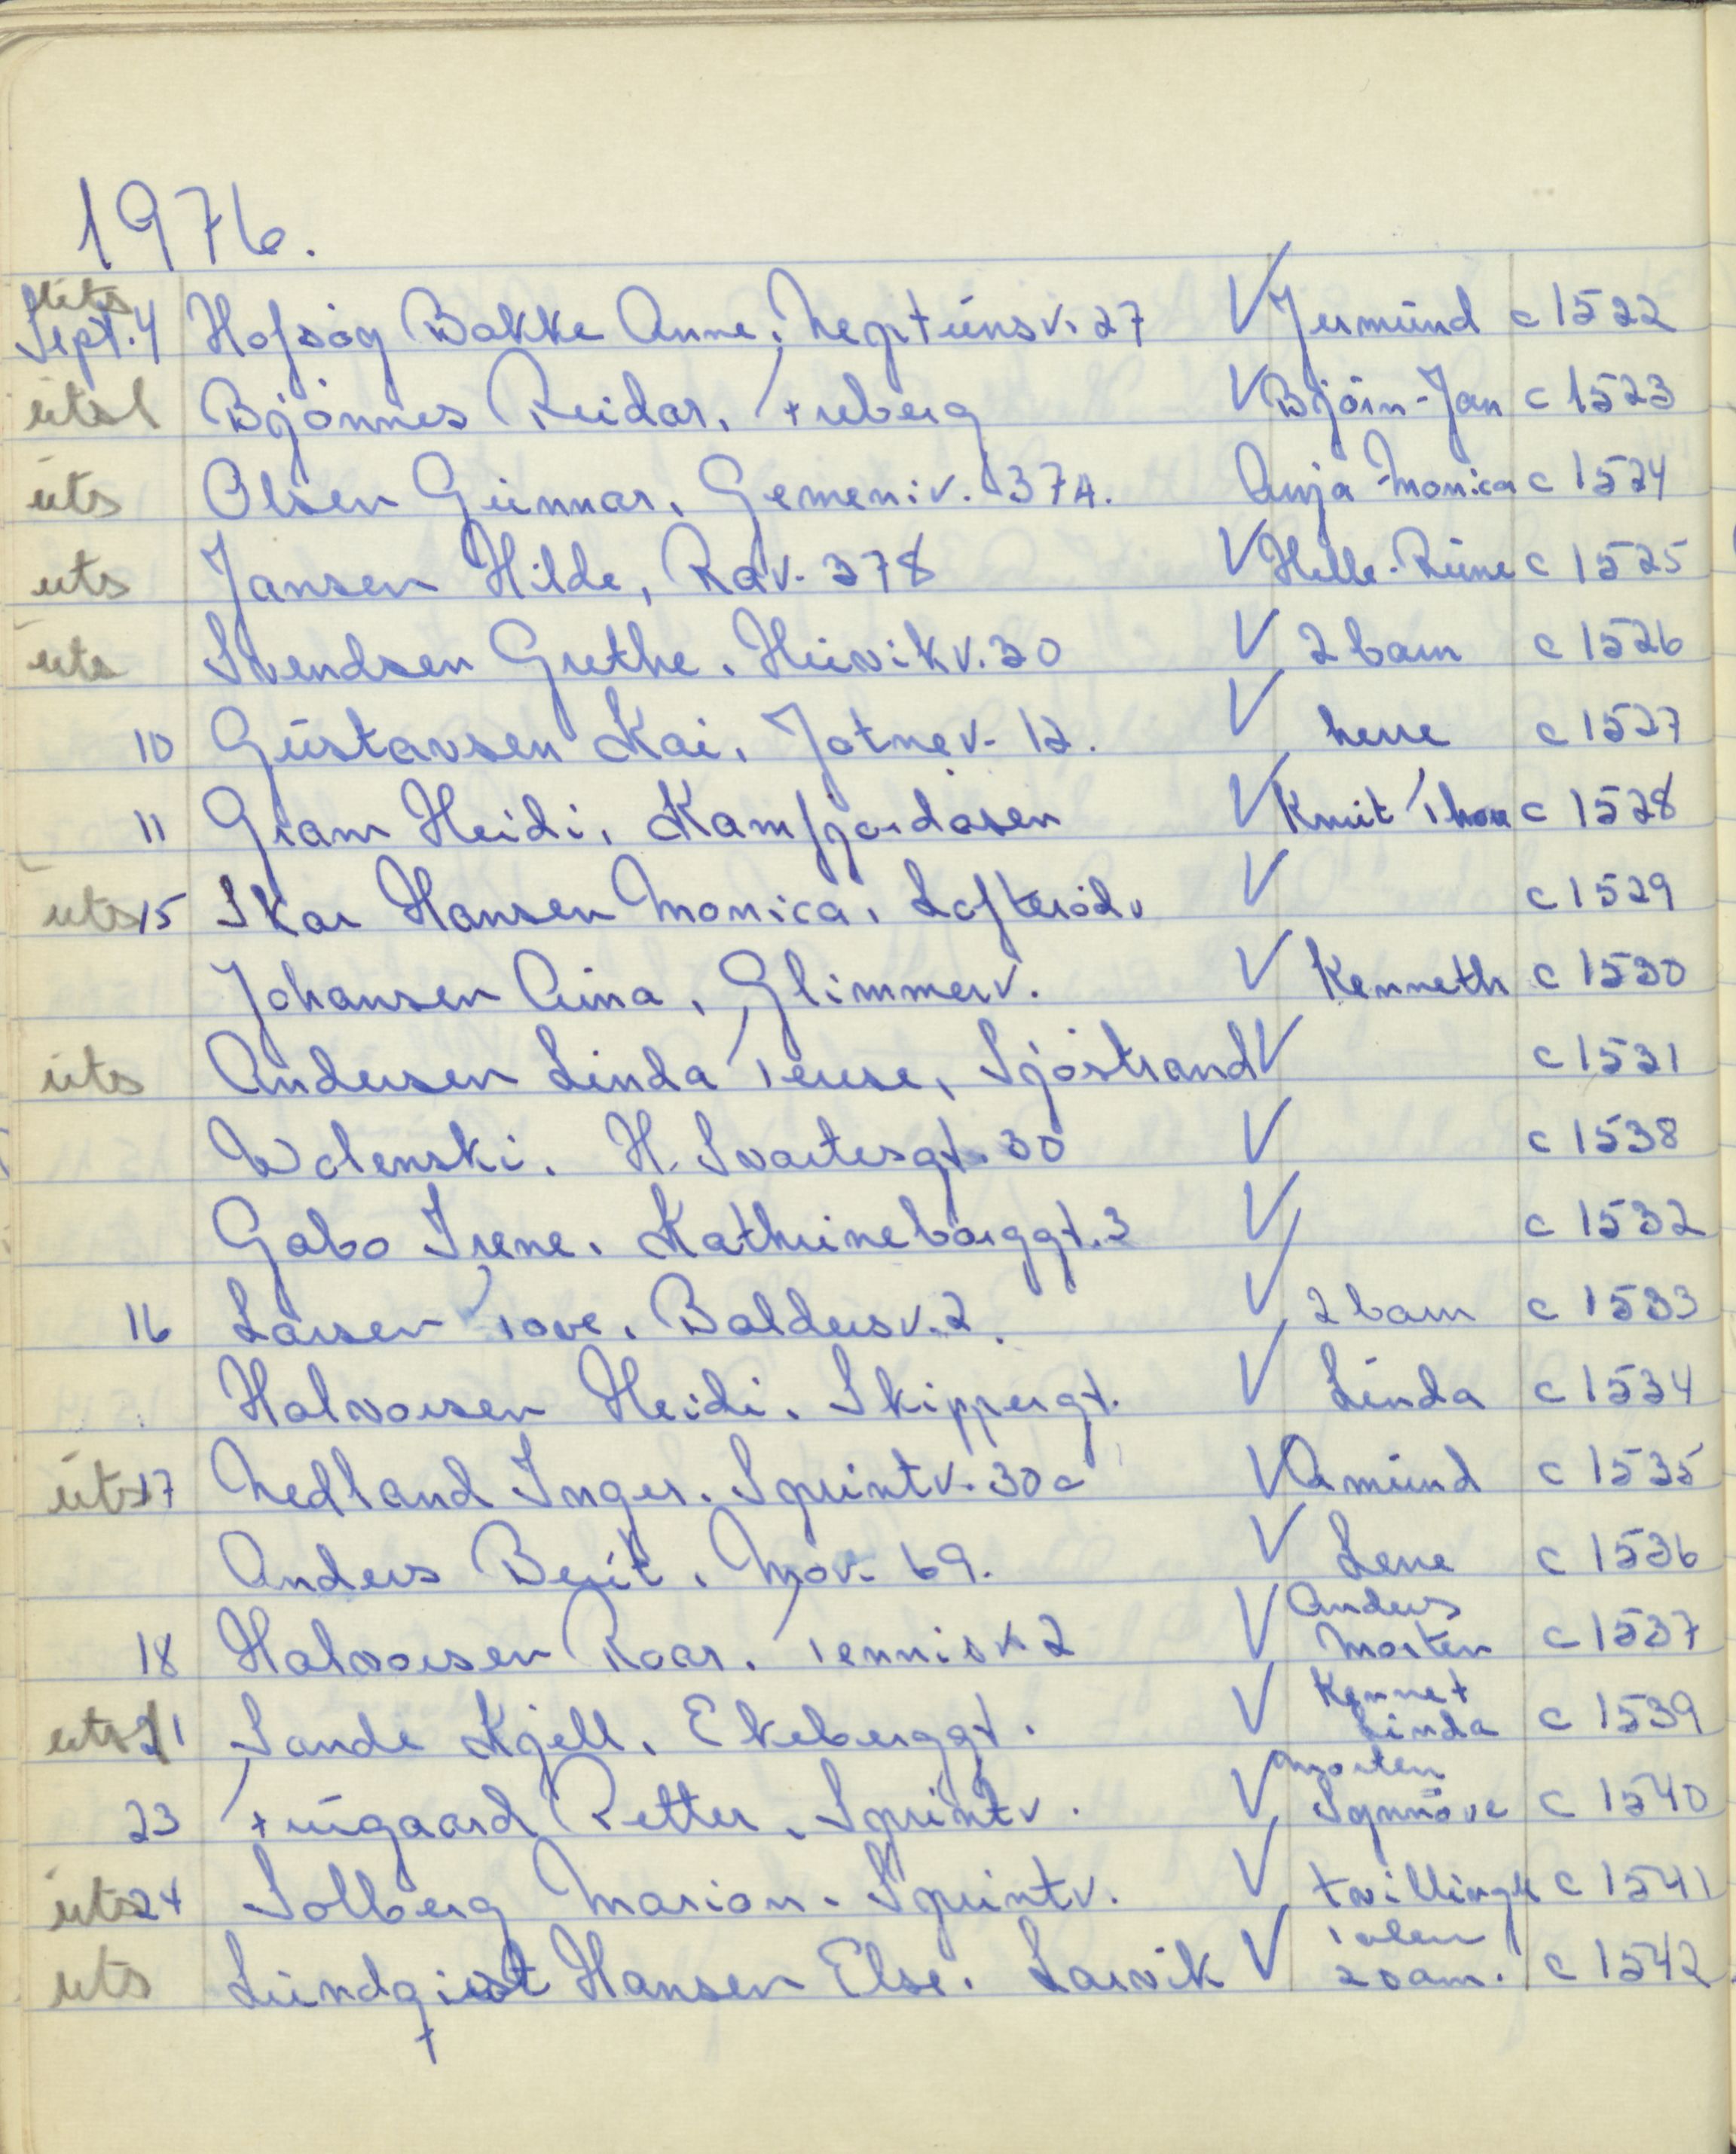 1976.
uts
Sept. 4 Hofsøy Bakke Anne, Neptunsv. 27 V Jermund c 1522
uts Bjønnes Reidar, Freberg V Bjørn-Jan c 1523
uts Olsen Gunnar, Gemeniv. 37A. Anja Monica c 1524
uts Jansen Hilde, Rav. 378 V Helle-Rune c 1525
uts Svendsen Grethe, Huvikv. 30 V 2 barn c 1526
10 Gustavsen Kai, Jotnev. 12. V herre c 1527
11 Gram Heidi, Kamfjordåsen V Knut Thore c 1528
uts 15 Skar Hansen Monica, Lofterødv V c 1529
Johansen Aina, Glimmerv. V Kenneth c 1530
uts Andersen Linda Terese, Sjøstrand V c 1531
Wolenski. H. Svartesgt. 30 V c 1538
Gabo Irene. Kathrineborggt. 3 V c 1532
16 Larsen Tove. Baldersv. 2. V 2 barn c 1533
Halvorsen Heidi. Skippergt. V Linda c 1534
uts 17 Nedland Inger. Sprintv. 30c V Amund c 1535
Anders Berit. Mov. 69. V Lene c 1536
18 Halvorsen Roar. Tennisv. 2 V Anders
Morten c 1537
uts 21 Sande Kjell. Ekeberggt. V Kennet
Linda c 1539
23 Furugaard Petter. Sprintv. V Morten
Synnøve c 1540
uts 24 Solberg Marion. Sprintv. V tvillinger c 1541
uts Lundqvist Hansen Else. Larvik V c 1542